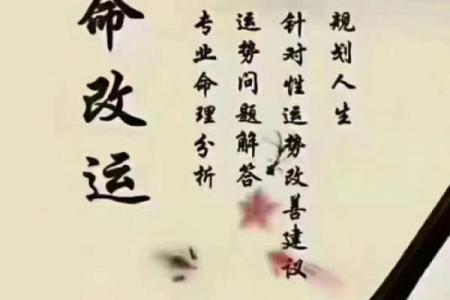 规划人生
针对性运势改善建议
运势问题解答
专业命理分析
命改运